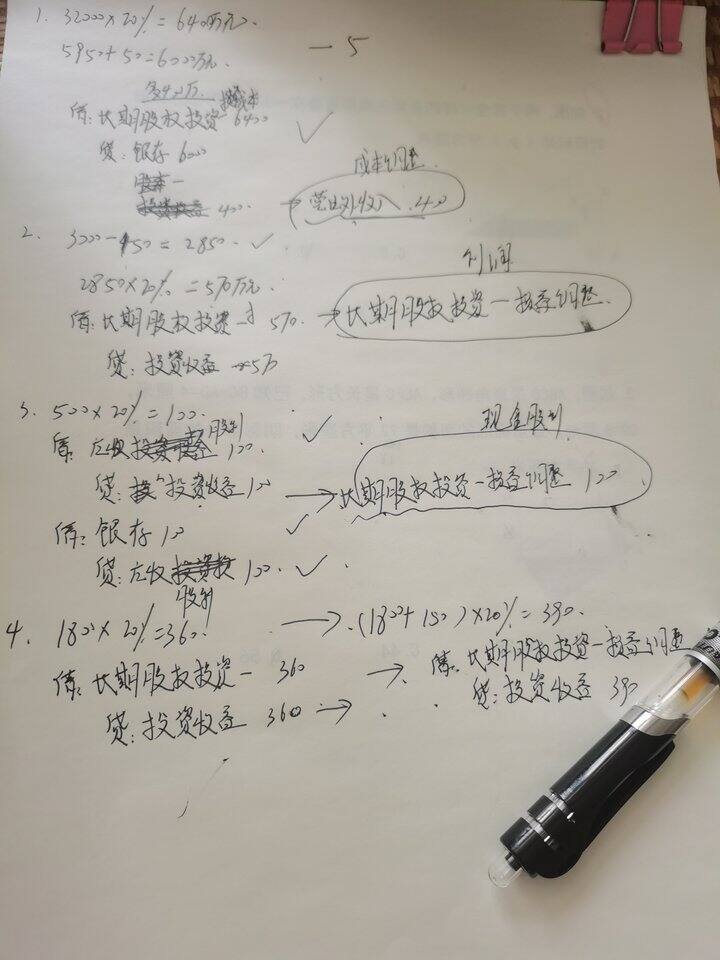 1. 32000×20%=6400万元.
5950+50=6000万元.
一 5
多400万. 投资成本
借:长期股权投资-6400
贷:银存 6000
400. → 营业外收入 400
成本调整.
2. 3000-150=2850. ✓
2850×20%=570万元.
利润
借:长期股权投资- 570. → 长期股权投资-损益调整.
贷:投资收益 570
3. 500×20%=100.
现金股利
借:应收股利 100. ✓
贷:投资收益 100 → 长期股权投资-损益调整 100
借:银存 100 ✓
贷:应收股利 100. ✓
4. 1800×20%=360. → (1800+150)×20%=390.
借:长期股权投资- 360 → 借:长期股权投资-损益调整
贷:投资收益 360 → 贷:投资收益 390